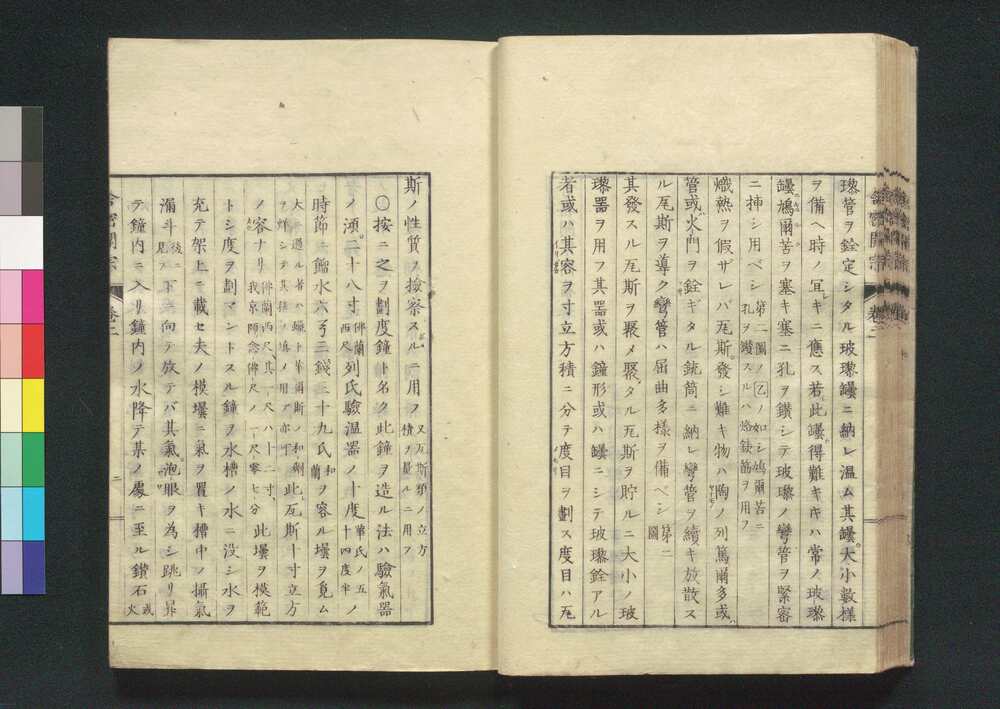 璨管ヲ銓定シタル玻璨罎ニ納レ温ム其罎大小數樣
ヲ備ヘ時ノ宜キニ應ス若此罎得難キキハ常ノ玻璨
罎鳩爾苦ヲ塞キ塞ニ孔ヲ鑽シテ玻璨ノ彎管ヲ緊密
ニ挿シ用ベシ 第二圖ノ乙ノ如シ鳩爾苦ニ
孔ヲ鑽スルハ烙鐵筯ヲ用フ
熾熱ヲ假ザレバ瓦斯發シ難キ物ハ陶ノ列篤爾多或
管或火門ヲ銓ギタル銃筒ニ納レ彎管ヲ續キ放散ス
ル瓦斯ヲ導ク彎管ハ屈曲多樣ヲ備ベシ 第二
圖
其發スル瓦斯ヲ聚メ聚タル瓦斯ヲ貯ルニ大小ノ玻
璨器ヲ用フ其器或ハ鐘形或ハ罎ニシテ玻璨銓アル
者或ハ其容ヲ寸立方積ニ分テ度目ヲ劃ス度目ハ瓦
斯ノ性質ヲ撿察スルニ用フ 又瓦斯類ノ立方
積ヲ量ルニ用フ
○按ニ之ヲ劃度鐘ト名ク此鐘ヲ造ル法ハ驗氣器
ノ頂二十八寸 佛蘭
西尺 列氏驗温器ノ十度 華氏ノ五
十四度半 ノ
時節ニ餾水六弓三錢三十九氏 和
蘭 ヲ容ル壜ヲ覓ム
大ニ過ル者ハ蠟ト華爾斯ノ和劑
ヲ鎔シテ其積ヲ填ノ用フ亦可 此瓦斯十寸立方
ノ容ナリ 佛蘭西尺、其一尺ハ十二寸、
我京師念佛尺ノ一尺零七分 此壜ヲ模範
トシ度ヲ劃マントスル鐘ヲ水槽ノ水ニ没シ水ヲ
充テ架上ニ載セ夫ノ模壜ニ氣ヲ置キ槽中ノ攝氣
漏斗 後ニ
見 下ニ向テ放テバ其氣泡眼ヲ為シ跳リ昇
テ鐘内ニ入リ鐘内ノ水降テ某ノ處ニ至ル鑽石 或
火
舎密開宗
卷二
二